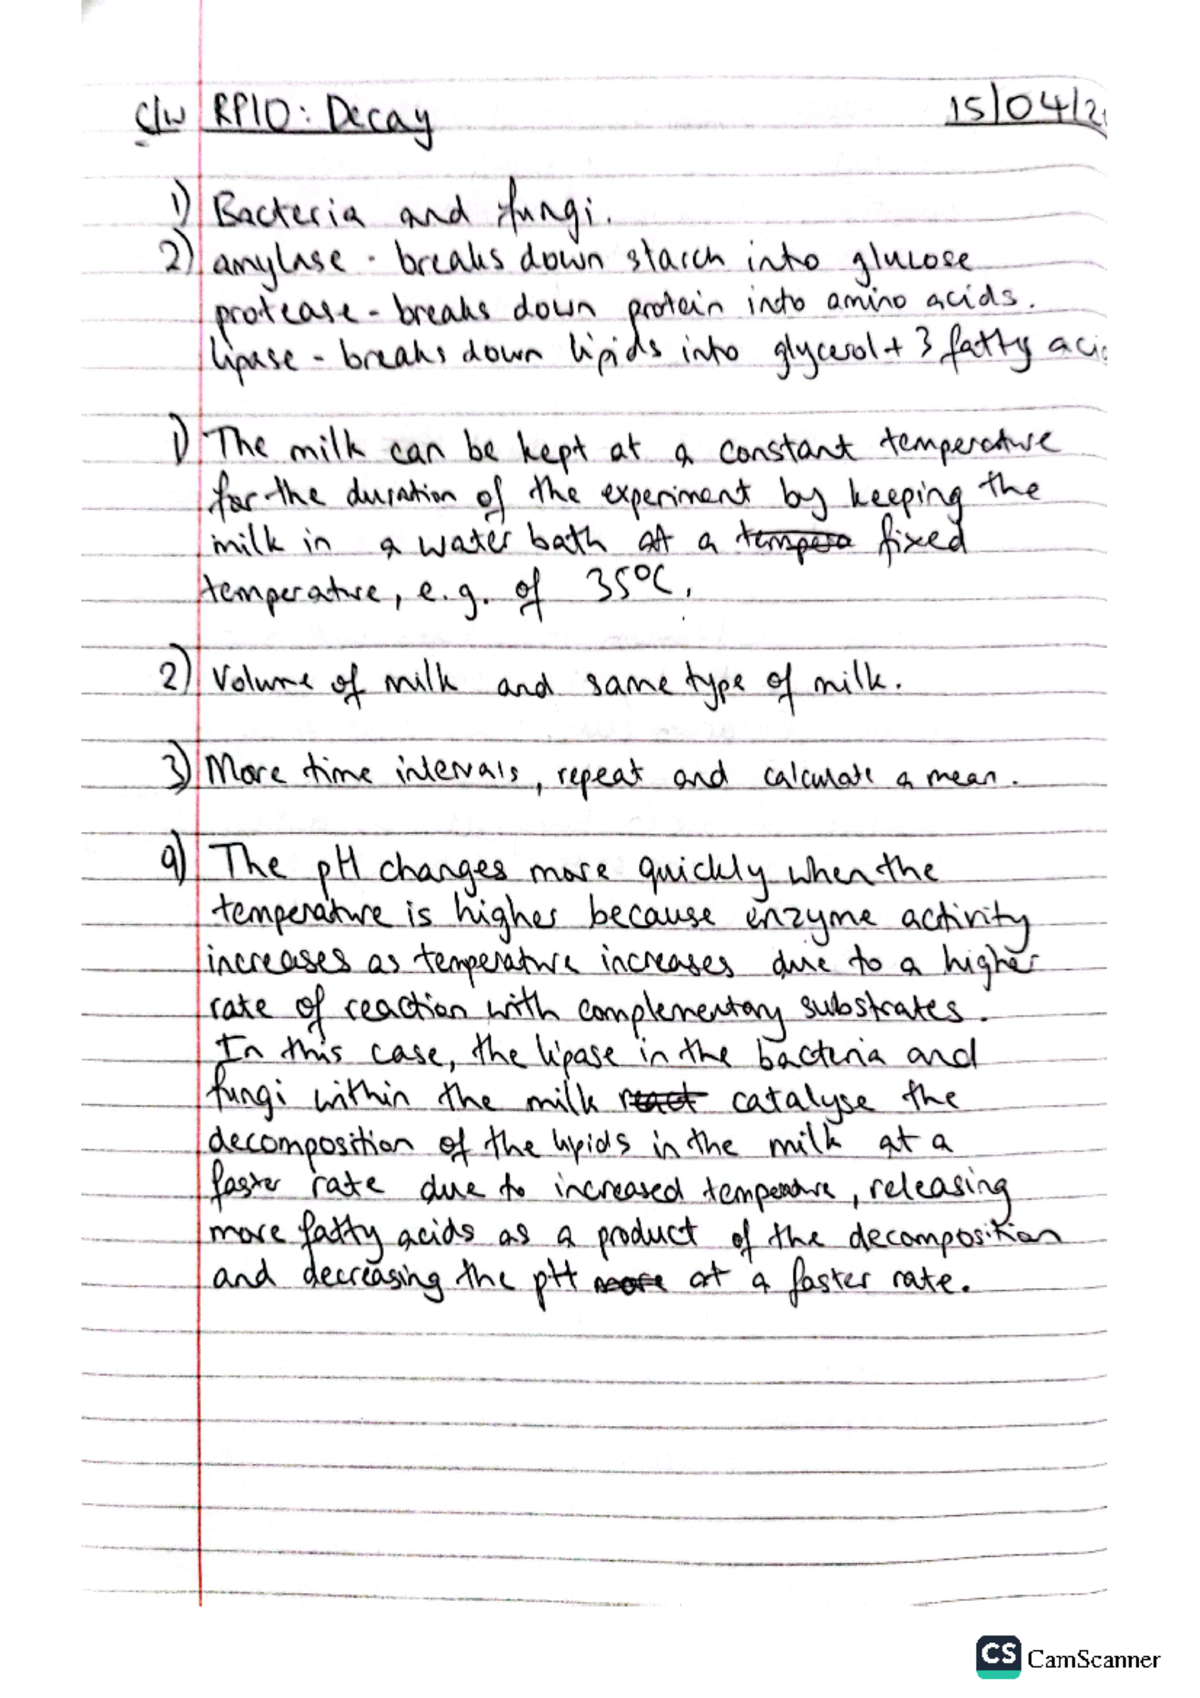 C/W RP10: Decay 15/04/2
1) Bacteria and fungi.
2) amylase - breaks down starch into glucose
protease - breaks down protein into amino acids.
lipase - breaks down lipids into glycerol + 3 fatty aci
1) The milk can be kept at a constant temperature
for the duration of the experiment by keeping the
milk in a water bath at a tempera fixed
temperature, e.g. of 35°C.
2) Volume of milk and same type of milk.
3) More time intervals, repeat and calculate a mean.
9) The pH changes more quickly when the
temperature is higher because enzyme activity
increases as temperature increases due to a higher
rate of reaction with complementary substrates.
In this case, the lipase in the bacteria and
fungi within the milk react catalyse the
decomposition of the lipids in the milk at a
faster rate due to increased temperature, releasing
more fatty acids as a product of the decomposition
and decreasing the pH more at a faster rate.
CS CamScanner